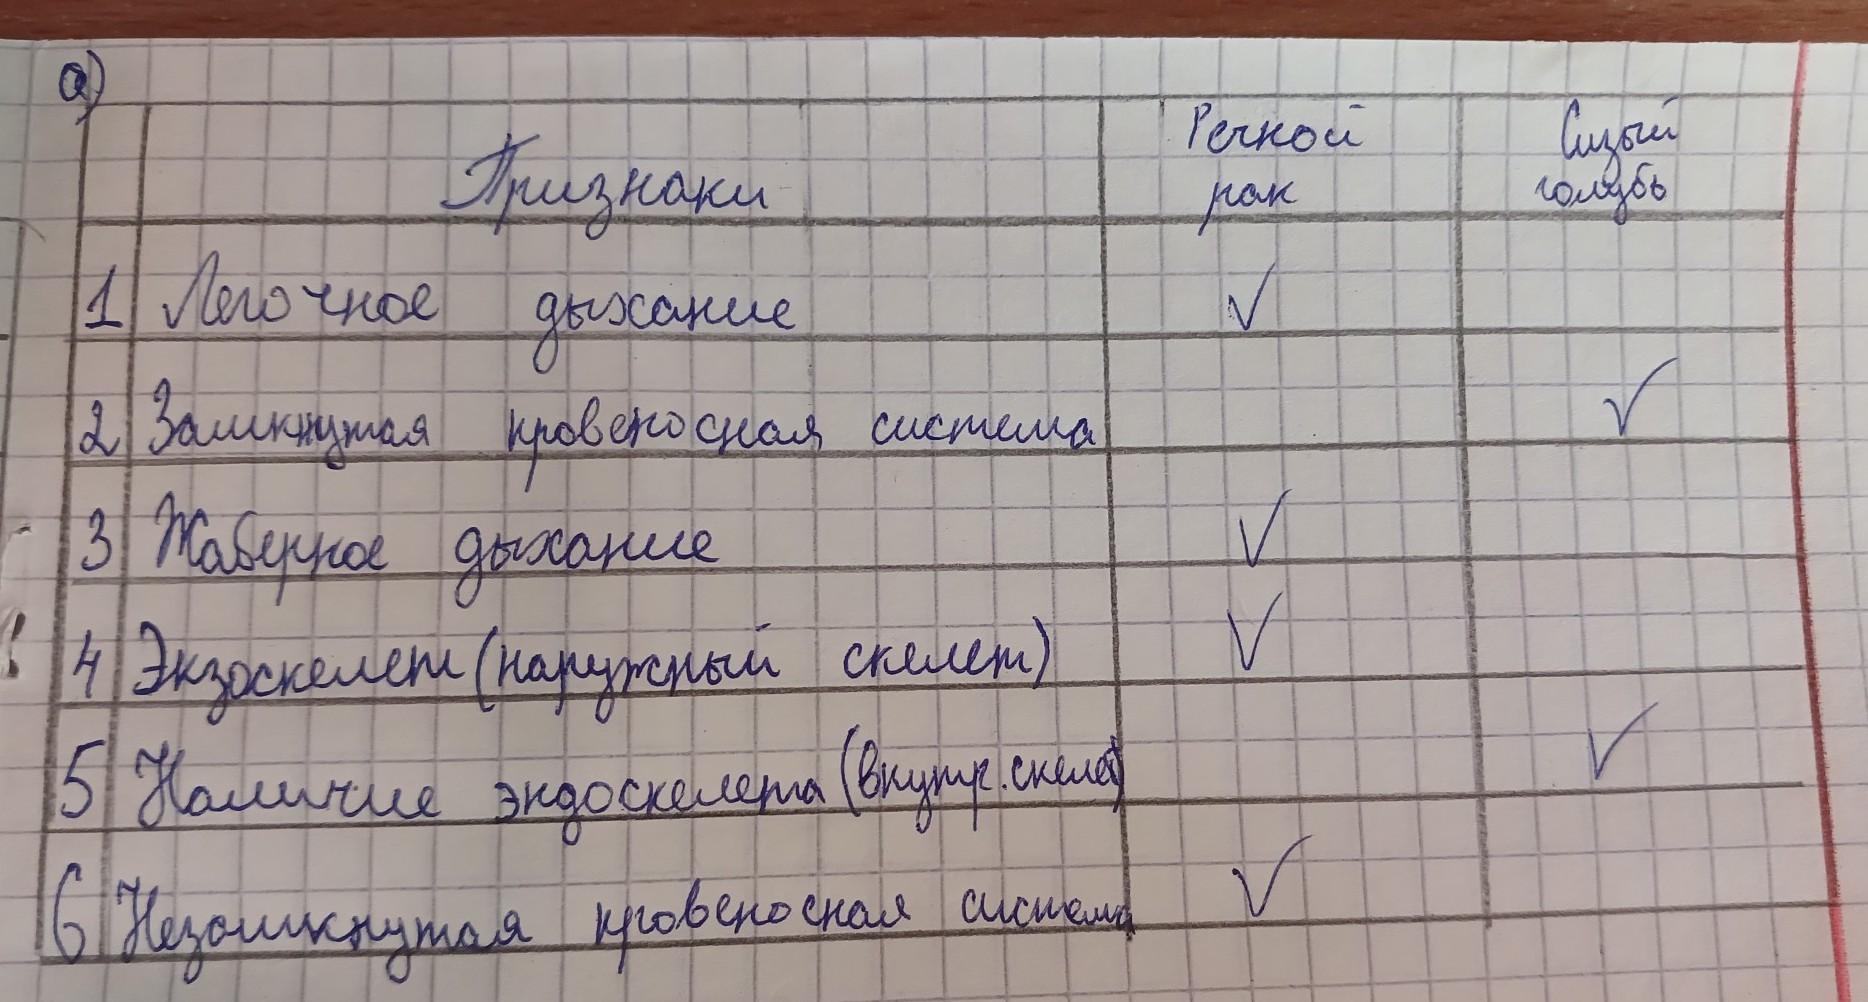 а)
Признаки Речной рак Сизый голубь
1 Легочное дыхание ✓
2 Замкнутая кровеносная система ✓
3 Жаберное дыхание ✓
4 Экзоскелет (наружный скелет) ✓
5 Наличие эндоскелета (внутр. скелет) ✓
6 Незамкнутая кровеносная система ✓